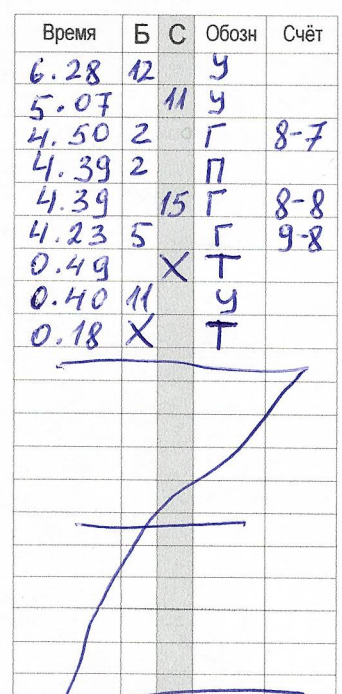 Время Б С Обозн Счёт
6.28 12 У
5.07 11 У
4.50 2 Г 8-7
4.39 2 П
4.39 15 Г 8-8
4.23 5 Г 9-8
0.49 X Т
0.40 11 У
0.18 X Т